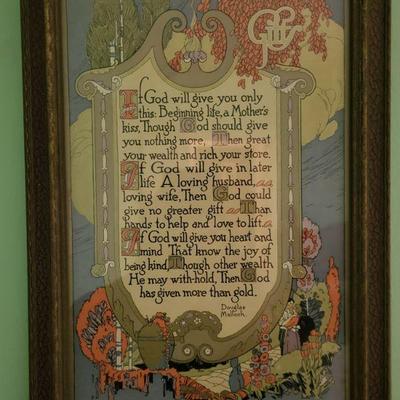 If God will give you only
this: Beginning life, a Mother's
kiss, Though God should give
you nothing more, Then great
your wealth and rich your store.
If God will give in later
life A loving husband,
loving wife, Then God could
give no greater gift Than
hands to help and love to lift.
If God will give you heart and
mind That know the joy of
being kind, Though other wealth
He may with-hold, Then God
has given more than gold.
Douglas
Malloch